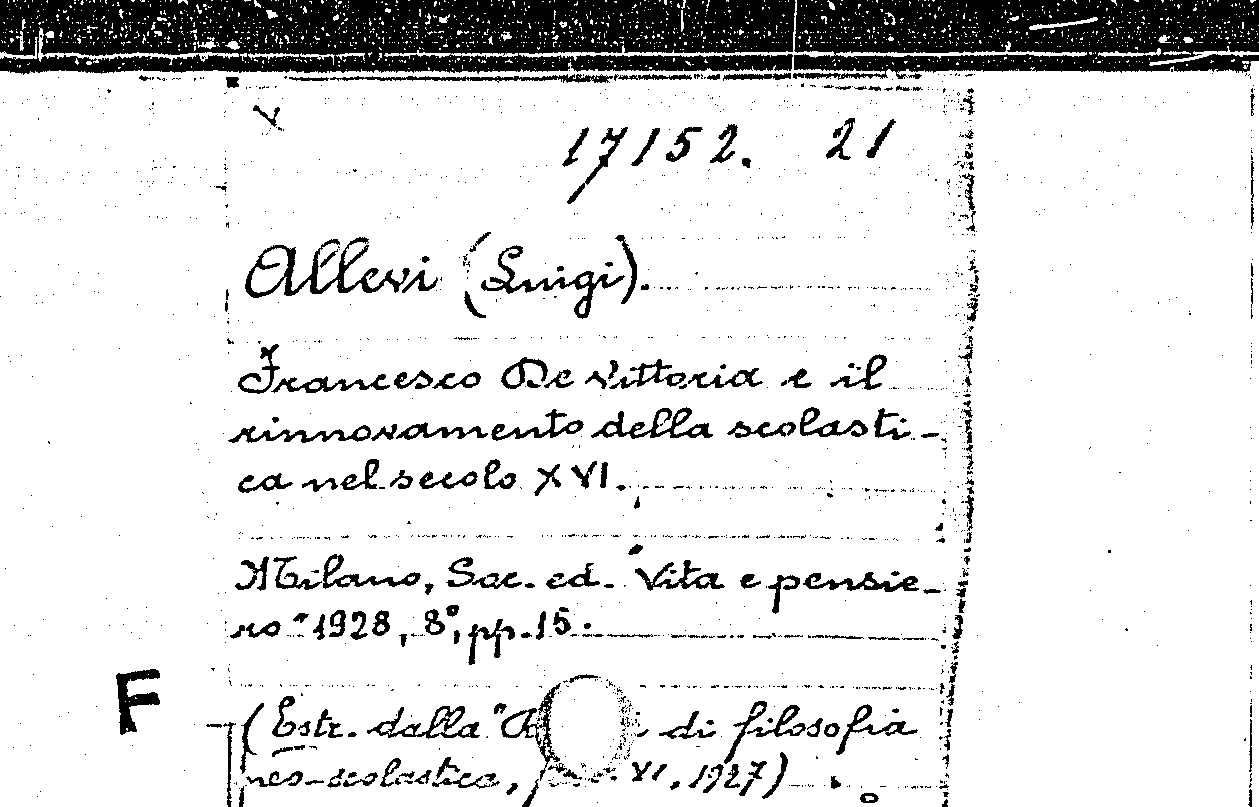 17152. 21
Allevi (Luigi).
Francesco De Vittoria e il
rinnovamento della scolasti-
ca nel secolo XVI.
Milano, Soc. ed. "Vita e pensie-
ro" 1928, 8°, pp. 15.
F
(Estr. dalla " di filosofia
neo-scolastica, VI, 1927)